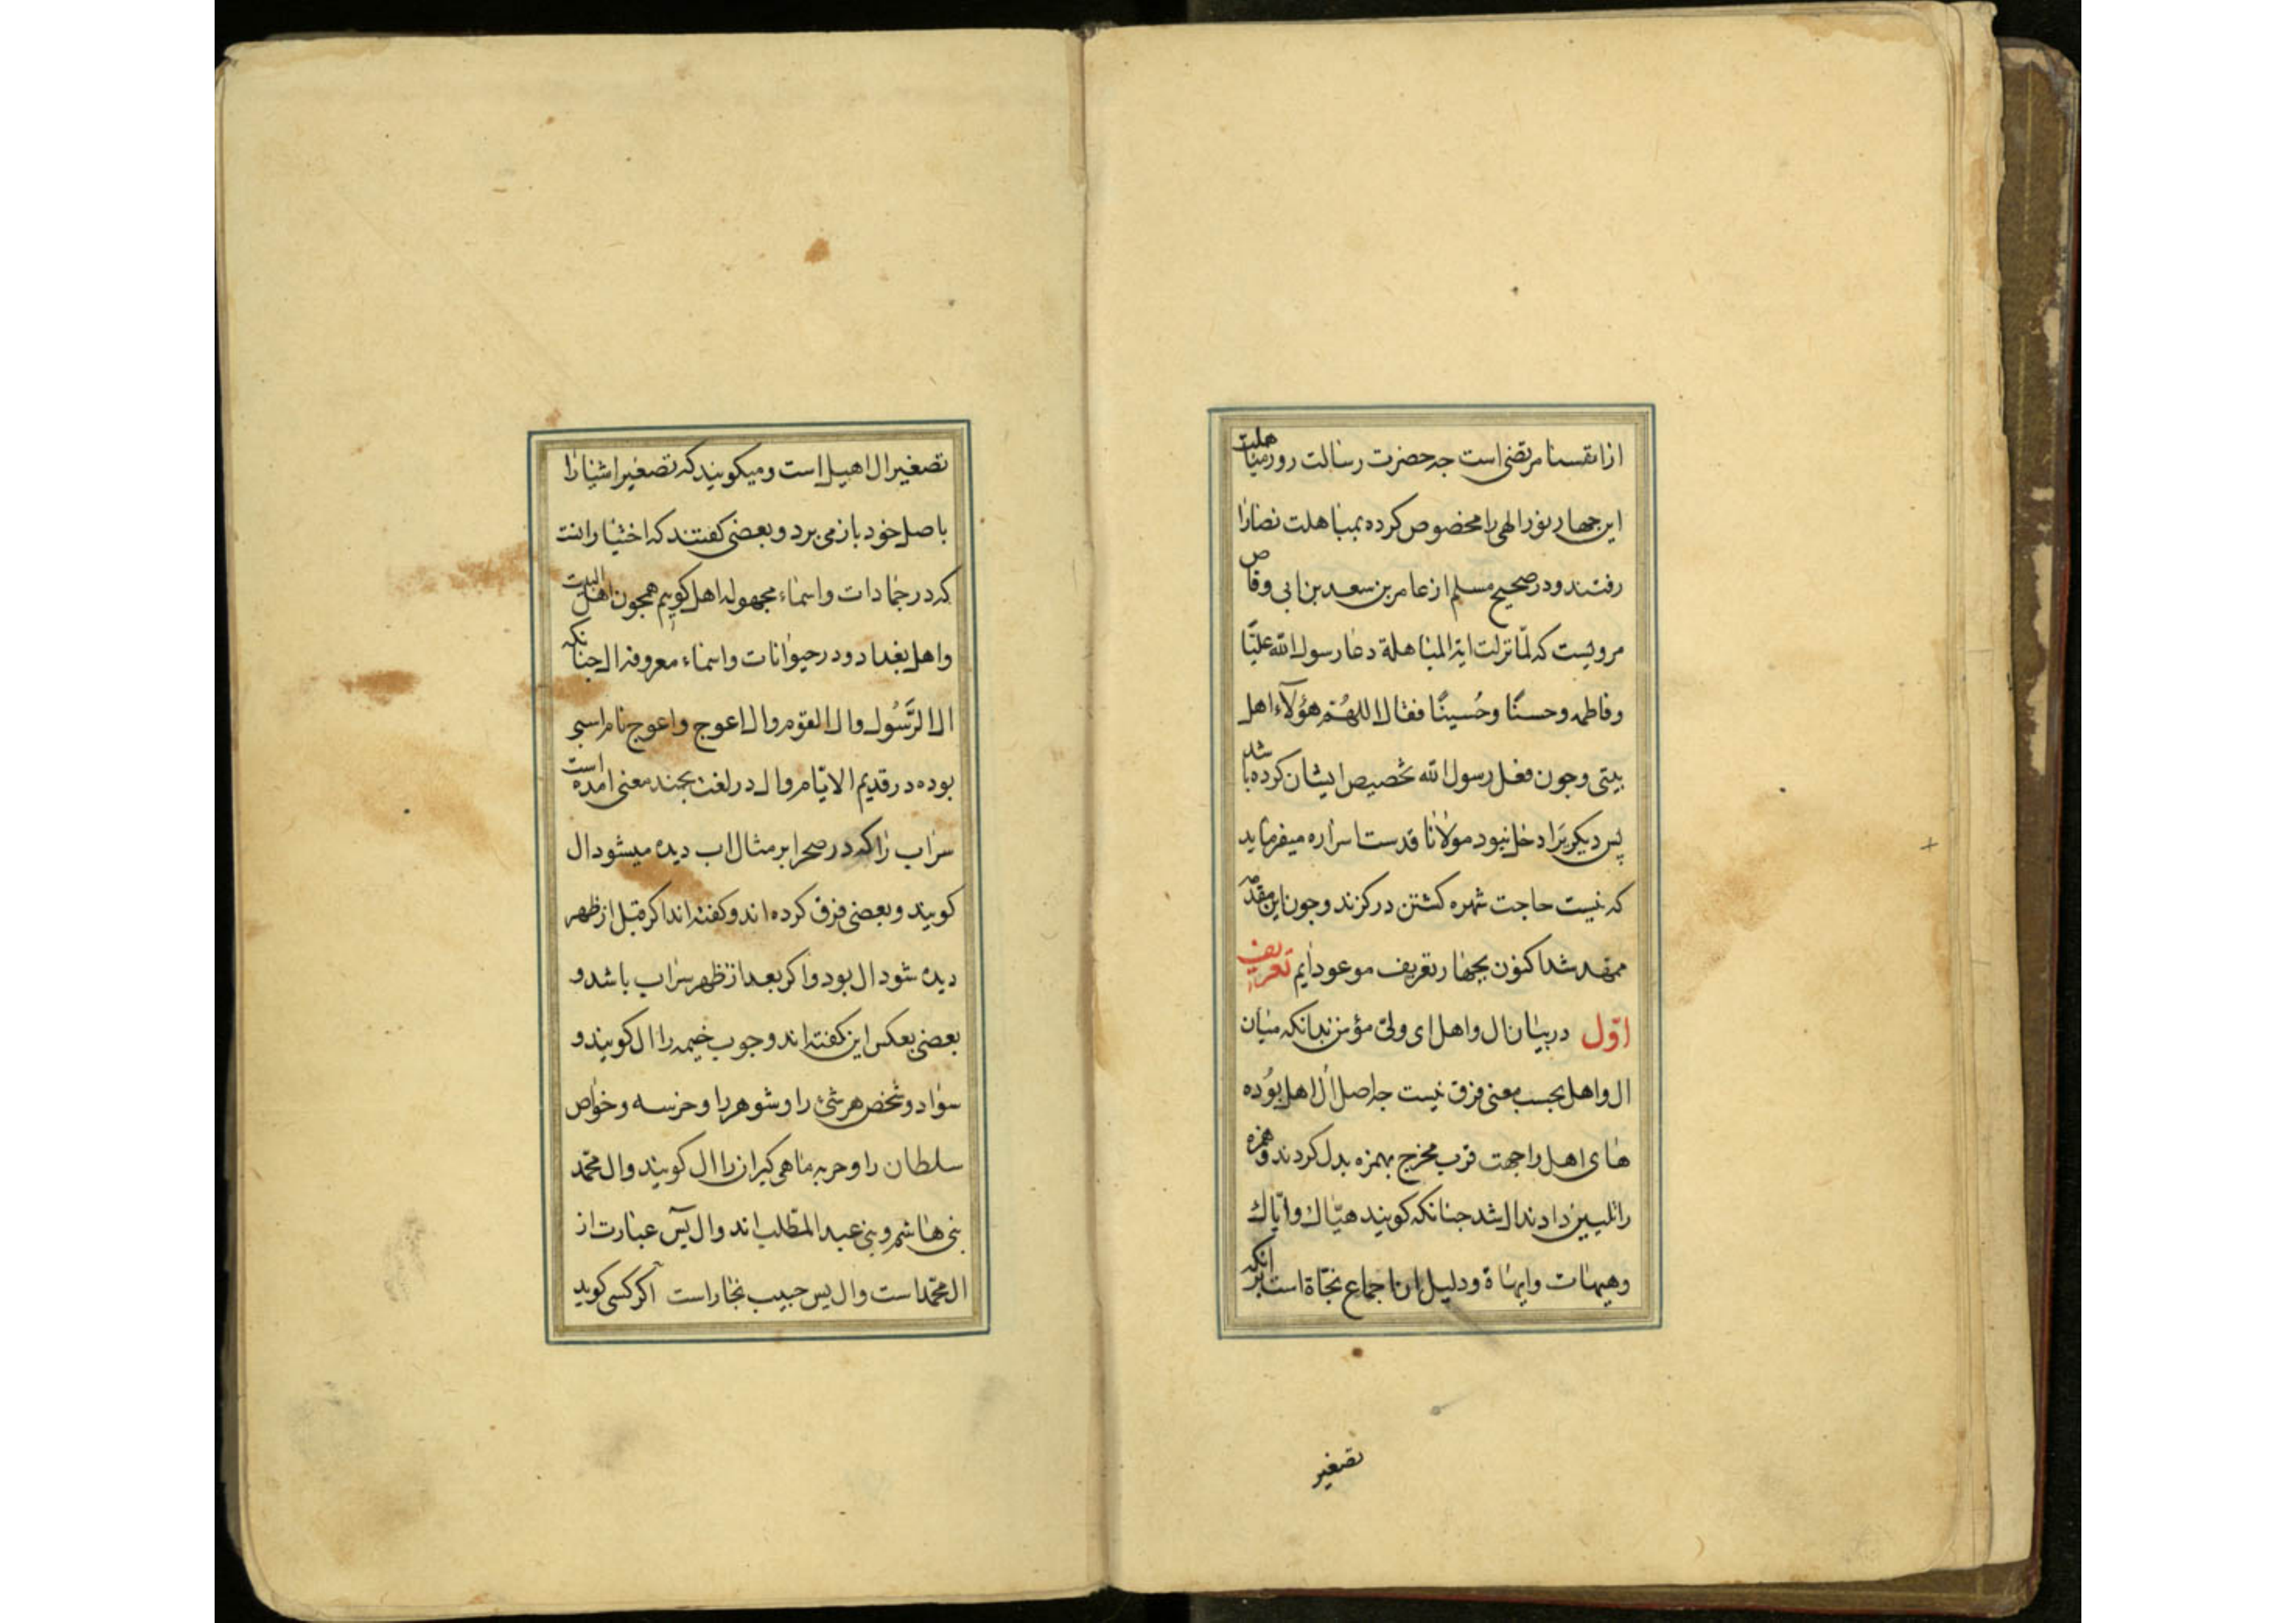 از انفسنا مرتضی است جه حضرت رسالت روز مباهلت
این جهار نور الهی را مخصوص کرده بمباهلت نصارا
رفتند و در صحیح مسلم از عامر بن سعد بن ابی وقاص
مرویست که لمّا نزلت ایة المباهلة دعا رسول الله علیّا
وفاطمه وحسنًا وحُسینًا فقال اللهُمّ هؤُلآء اهل
بیتی وجون فعل رسول الله تخصیص ایشان کرده باشد
پس دیکریرا دخل نبود مولانا قدست اسراره میفرماید
که نیست حاجت شهره کشتن در کزند وجون این مقدمه
ممهد شد اکنون بجهار تعریف موعود ایم تعریف
اوّل در بیان ال واهل ای ولیّ مؤمن بدانکه میان
ال واهل بحسب معنی فرق نیست جه اصل ال اهل بوُده
های اهل را جهت قرب مخرج بهمزه بدل کردند و همزه
را تلیین دادند ال شد جنانکه کویند هیّاك وایّاك
وهیهات وایهاة ودلیل ان اجماع نحاة است بر انکه
تصغیر
تصغیر ال اهیل است ومیکویند که تصغیر اشیا را
باصل خود باز می برد وبعضی کفتند که اختیار انست
که در جمادات واسماء مجهوله اهل کوییم همجون اهل البیت
واهل بغداد ودر حیوانات واسماء معروفه ال جنانکه
ال الرَّسُول وال القوم وال اعوج واعوج نام اسبی
بوده در قدیم الایّام وال در لغت بجند معنی امده است
سراب را که در صحرا بر مثال اب دیده میشود ال
کویند وبعضی فرق کرده اند وکفته اند اکر قبل از ظهر
دیده شود ال بود واکر بعد از ظهر سراب باشد و
بعضی بعکس این کفته اند وجوب خیمه را ال کویند و
سواد وشخص هر شیٔ را وشوهر را وحرسه وخواص
سلطان را وحربه ماهی کیران را ال کویند وال محمّد
بنی هاشم وبنی عبد المطّلب اند وال یسٓ عبارت از
ال محمّد است وال یس حبیب نجار است اکر کسی کوید